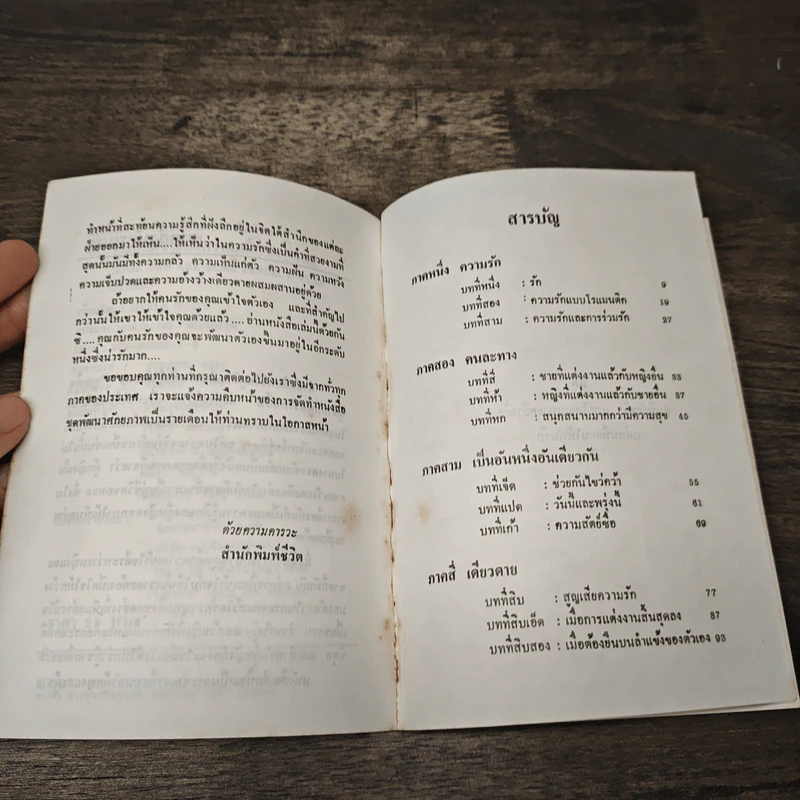 ทำหน้าที่สะท้อนความรู้สึกที่ฝังลึกอยู่ในจิตใต้สำนึกของแต่ละ
ฝ่ายออกมาให้เห็น....ให้เห็นว่าในความรักซึ่งเป็นคำที่สวยงามที่
สุดนั้นมันมีทั้งความกลัว ความเห็นแก่ตัว ความฝัน ความหวัง
ความเจ็บปวดและความอ้างว้างเดียวดายผสมผสานอยู่ด้วย
ถ้าอยากให้คนรักของคุณเข้าใจตัวเอง และที่สำคัญไป
กว่านั้นให้เขาให้เข้าใจคุณด้วยแล้ว....อ่านหนังสือเล่มนี้ด้วยกัน
ซิ....คุณกับคนรักของคุณจะพัฒนาตัวเองขึ้นมาอยู่ในอีกระดับ
หนึ่งซึ่งน่ารักมาก....
ขอขอบคุณทุกท่านที่กรุณาติดต่อไปยังเราซึ่งมีจากทั่วทุก
ภาคของประเทศ เราจะแจ้งความคืบหน้าของการจัดทำหนังสือ
ชุดพัฒนาศักยภาพเป็นรายเดือนให้ท่านทราบในโอกาสหน้า
ด้วยความคารวะ
สำนักพิมพ์ชีวิต
สารบัญ
ภาคหนึ่ง ความรัก
บทที่หนึ่ง : รัก 9
บทที่สอง : ความรักแบบโรแมนติก 19
บทที่สาม : ความรักและการร่วมรัก 27
ภาคสอง คนละทาง
บทที่สี่ : ชายที่แต่งงานแล้วกับหญิงอื่น 33
บทที่ห้า : หญิงที่แต่งงานแล้วกับชายอื่น 37
บทที่หก : สนุกสนานมากกว่ามีความสุข 45
ภาคสาม เป็นอันหนึ่งอันเดียวกัน
บทที่เจ็ด : ช่วยกันไขว่คว้า 55
บทที่แปด : วันนี้และพรุ่งนี้ 61
บทที่เก้า : ความสัตย์ซื่อ 69
ภาคสี่ เดียวดาย
บทที่สิบ : สูญเสียความรัก 77
บทที่สิบเอ็ด : เมื่อการแต่งงานสิ้นสุดลง 87
บทที่สิบสอง : เมื่อต้องยืนบนลำแข้งของตัวเอง 93